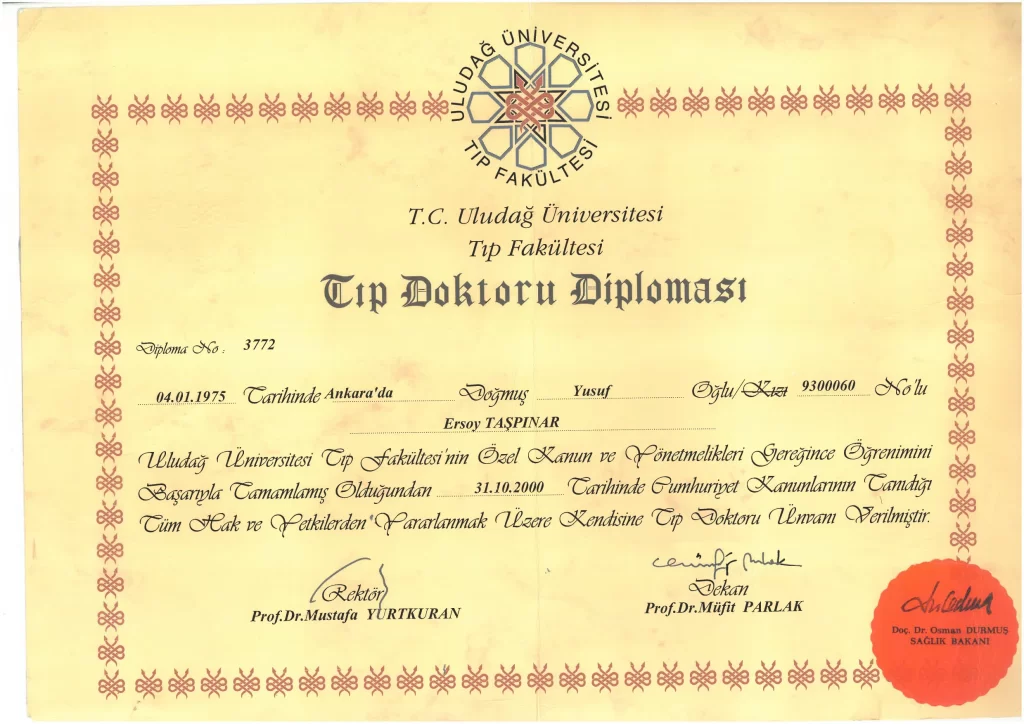 ULUDAĞ ÜNİVERSİTESİ
TIP FAKÜLTESİ
T.C. Uludağ Üniversitesi
Tıp Fakültesi
Tıp Doktoru Diploması
Diploma No : 3772
04.01.1975 Tarihinde Ankara'da Doğmuş Yusuf Oğlu/Kızı 9300060 No'lu
Ersoy TAŞPINAR
Uludağ Üniversitesi Tıp Fakültesi'nin Özel Kanun ve Yönetmelikleri Gereğince Öğrenimini
Başarıyla Tamamlamış Olduğundan 31.10.2000 Tarihinde Cumhuriyet Kanunlarının Tanıdığı
Tüm Hak ve Yetkilerden Yararlanmak Üzere Kendisine Tıp Doktoru Ünvanı Verilmiştir.
Rektör
Prof.Dr.Mustafa YURTKURAN
Dekan
Prof.Dr.Müfit PARLAK
Doç. Dr. Osman DURMUŞ
SAĞLIK BAKANI